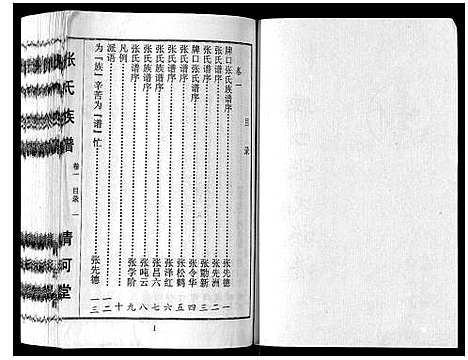 卷一 目录
牌口张氏族谱序……张先德 一
张氏谱序……张先洲 二
张氏谱序……张勋新 三
牌口张氏族谱序……张令华 四
张氏谱序……张松鹤 五
张氏谱序……张泽红 六
张氏谱序……张吕六 七
张氏族谱序……张吨云 八
张氏族谱序……张学阶 九
凡例……十
派语……一一
为“族”辛苦为“谱”忙……张先德 一三
张氏族谱
卷一 目录 一
清河堂
1